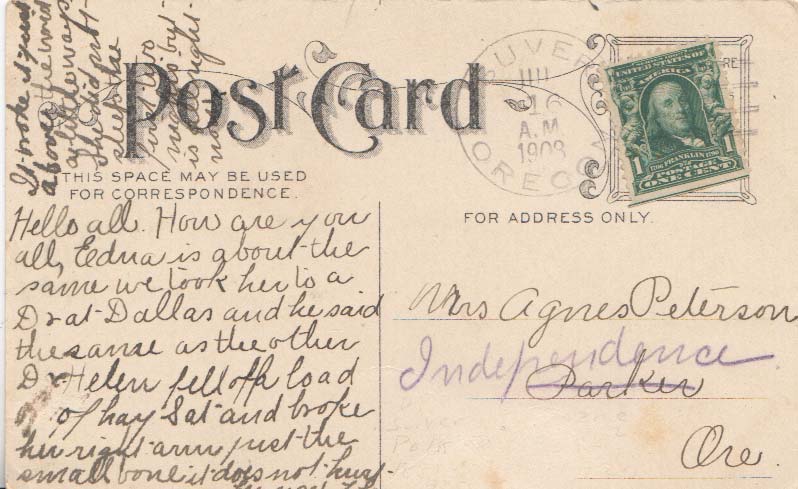 It broke it just
above the wrist
a little ways
She did not
sleep
for two
nights but
is all right
now
Post Card
THIS SPACE MAY BE USED
FOR CORRESPONDENCE.
FOR ADDRESS ONLY.
SUVER
JUL
16
A.M.
1908
OREGON
UNITED STATES OF
AMERICA
1706 FRANKLIN 1790
POSTAGE
1 ONE CENT 1
RE
Hello all. How are you
all, Edna is about the
same we took her to a
Dr at Dallas and he said
the same as the other
Dr. Helen fell off a load
of hay Sat and broke
her right arm just the
small bone it does not hurt
Mrs Agnes Peterson
Independence
Parker
Ore.